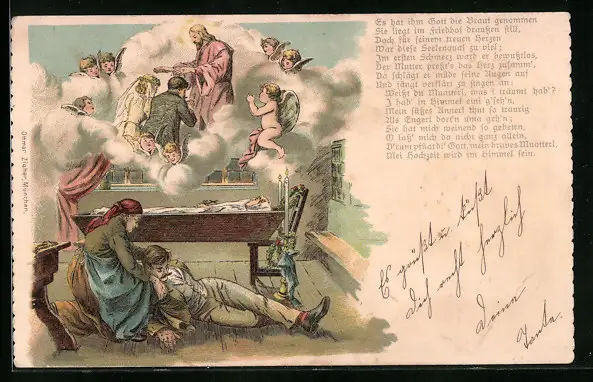 Es hat ihm Gott die Braut genommen
Sie liegt im Friedhof draußen still,
Doch für seinem treuen Herzen
War diese Seelenqual zu viel;
Im ersten Schmerz ward er bewußtlos,
Der Mutter preßt's das Herz zusamm'.
Da schlägt er müde seine Augen auf
Und fängt verklärt zu singen an:
Weißt du Muatterl, was i träumt hab'?
I hab' in Himmel eini g'seh'n,
Mein süßes Annerl thut so traurig
Als Engerl dort'n uma geh'n;
Sie hat mich weinend so gebeten,
O laß' mich do nicht ganz allein,
D'rum pfüadi' Gott, mein braves Muatterl,
Mei Hochzeit wird im Himmel sein.
Ottmar Zieher, München.
Es grüßt u. küßt
Dich recht herzlich
Deine
Tante.